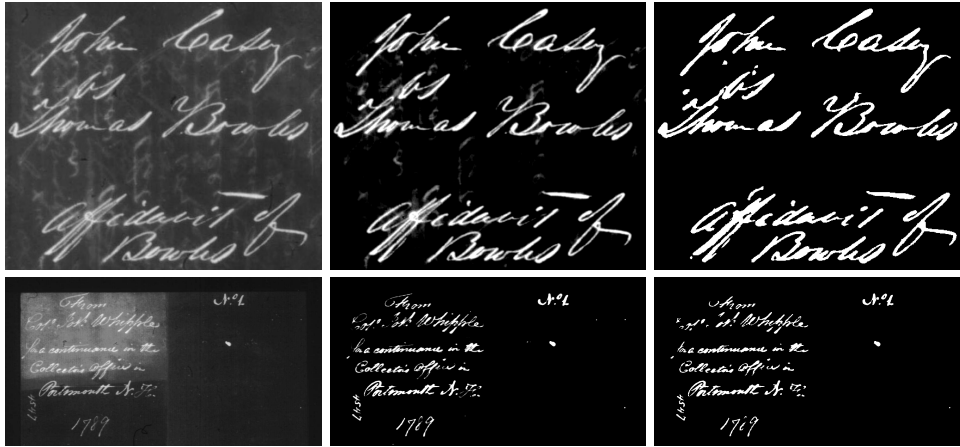 John Casey
vs
Thomas Bowles
Affidavit of
Bowles
John Casey
vs
Thomas Bowles
Affidavit of
Bowles
John Casey
vs
Thomas Bowles
Affidavit of
Bowles
From
Whipple
for a continuance in the
Collectors Office in
Portsmouth N. H.
1789
No 1
From
Whipple
for a continuance in the
Collectors Office in
Portsmouth N. H.
1789
No 1
From
Whipple
for a continuance in the
Collectors Office in
Portsmouth N. H.
1789
No 1